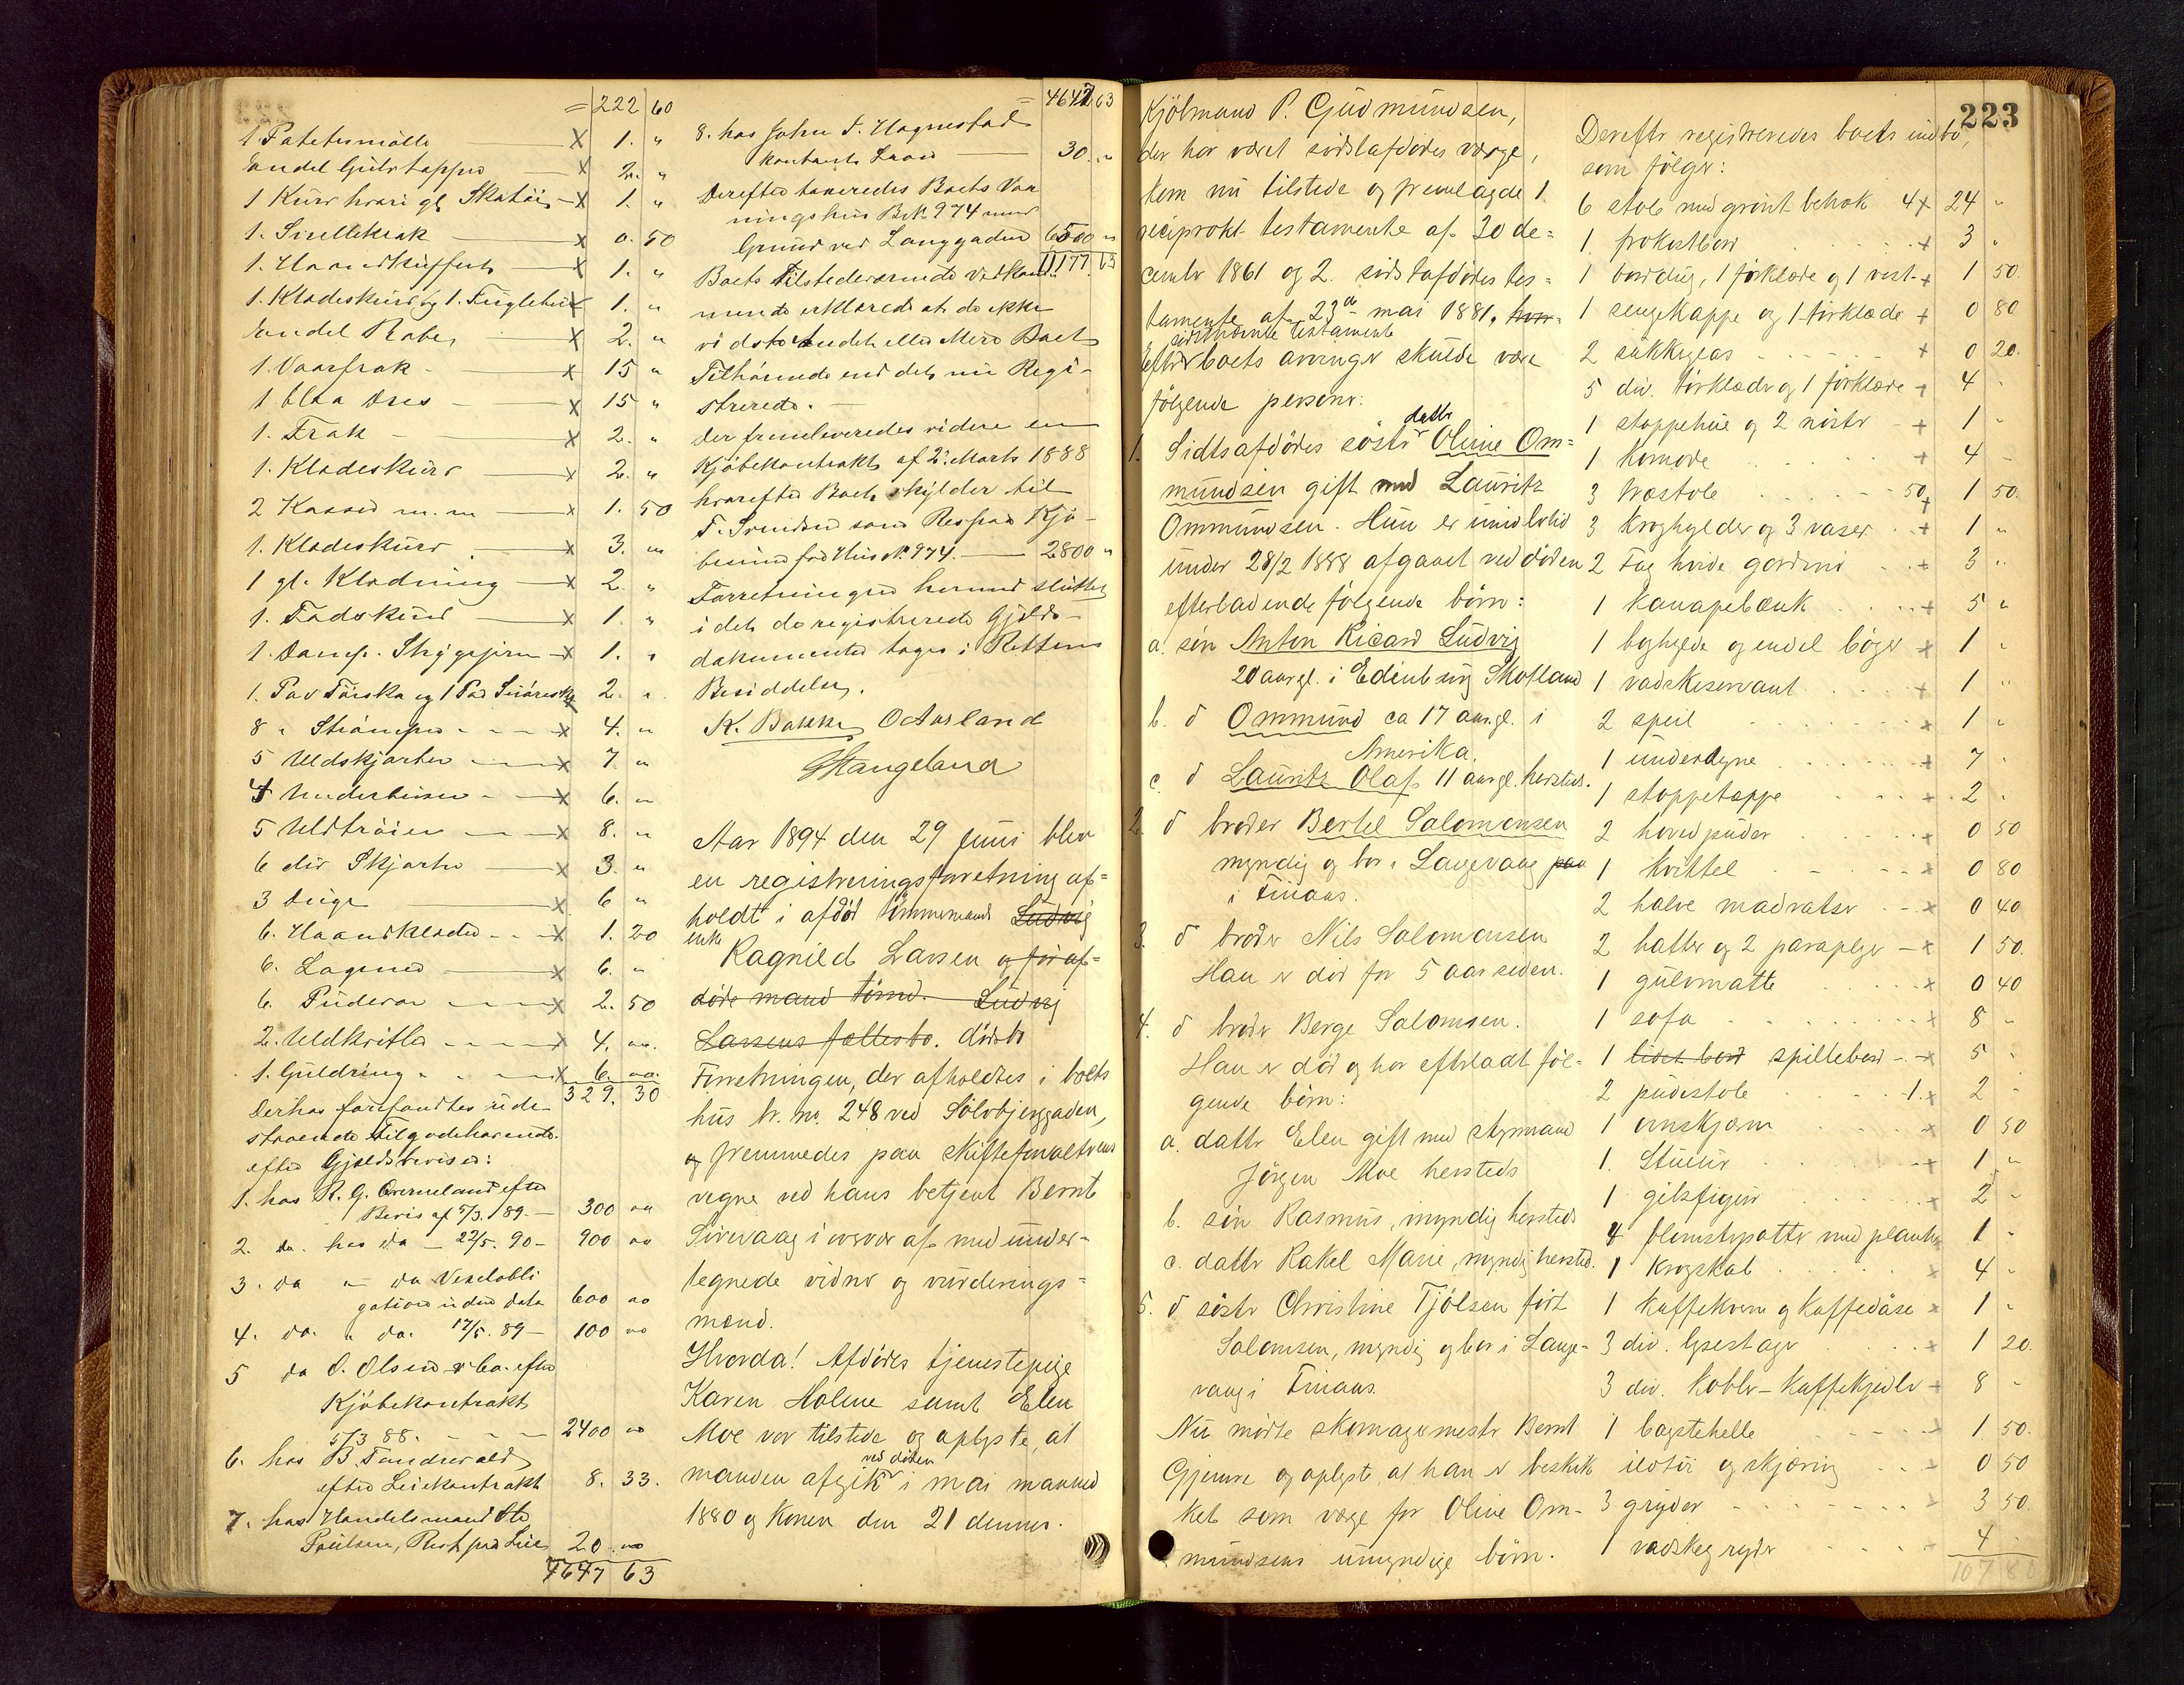 = 222 60
1 Potetesmølle X 1. "
Endel Gulvtapper X 2. "
1 Kurv hvori gl Skotøi X 1. "
1. Sirellekrak X 0. 50
1. Haandkuffert X 1. "
1. Kladeskurv og 1. Fuglebur X 1. "
Endel Raber X 2. "
1. Vaarfrak X 15 "
1 blaa Dres X 15 "
1. Frak X 2. "
1. Kladeskurv X 2. "
2 Kasser m. m X 1. 50
1. Kladeskurv X 3. "
1 gl. Kladning X 2. "
1. Fodskind X 1. "
1. Damp. Strygejern X 1. "
1. Par Törska og 1 Par Snöresko X 2. "
8 " Strømper X 4. "
5 Uldskjorter X 7. "
4 Underbuxer X 6. "
5 Uldtrøier X 8. "
6 div Skjorter X 3. "
3 Duge X 6 "
6. Haandklæder X 1. 20
6. Lagener X 6. "
6. Pudevar X 2. 50
2. Uldkvitler X 4. "
1. Guldring X 6. "
329. 30
Derhos forefandtes ude-
staaende Tilgodehavende.
efter Gjældsbeviser:
1. hos R. G. Overneland efter
Bevis af 5/3. 89. 300 "
2. da. hos da 22/5. 90 - 900 "
3. da " da Vexelobli
gation uden data 600 "
4. da. " da. 17/5. 89 - 100 "
5 da O. Olsen & Co. efter
Kjøbekontrakt
5/3 88. 2400 "
6. hos B. Tandrevald
efter Leiekontrakt 8. 33.
7. hos Handelsmand Ole
Poulsen, Rest paa Leie 20 "
4647 63
= 4647 63
8. hos John T. Hognestad
kontante Laan 30. "
Derefter taxeredes Boets Vaa
ningshus B. No 974 med
Grund ved Langgaden 6500 "
11177. 63
Boets Tilstedeværende Vedkom-
mende erklærede at de ikke
vidste andet eller Mere Boet
Tilhørende end det nu Regi-
strerede.
Der fremleveredes videre en
Kjøbekontrakt af 2. Marts 1888
hvorefter Boet skylder til
T. Svendsen som Rest paa Kjø-
besum for Hus No 974. 2800 "
Forretningen hermed sluttet
idet de registrerede Gjælds-
dokumenter tages i Rettens
Besiddelse.
K. Bakke O Aarland
G Hangeland
Aar 1894 den 29 juni blev
en registreringsforretning af-
holdt i afdød tømmermand Ludvig
enke
Ragnild Larsen og før af-
døde mand tømmd. Ludvig
Larsens fællesbo. dødsbo
Forretningen, der afholdtes i boets
hus br. no. 248 ved Sölvbjerggaden,
og fremmedes paa skifteforvalterens
vegne ved hans betjent Bernt
Sirevaag i overvær af med under-
tegnede vidner og vurderings-
mænd.
Hvorda! Afdødes tjenestepige
Karen Holme samt Elen
Moe var tilstede og oplyste, at
ved döden
manden afgik i mai maaned
1880 og konen den 21 dennes.
223
Kjöbmand P. Gudmundsen,
der har været sidstafdödes værge,
kom nu tilstede og fremlagde 1.
reciprokt testamente af 30 de-
cember 1861 og 2. sidstafdödes tes-
tamente af 23de mai 1881, hvor-
sidstnævnte testamente
efter boets arvinger skulde være
følgende personer:
datter
1. Sidtsafdödes söster Oline Om-
mundsen gift med Lauritz
Ommundsen. Hun er imidlertid
under 28/2 1888 afgaaet ved döden
efterladende følgende börn:
a. sön Anton Ricard Ludvig
20 aar gl. i Edinburg Skotland
b. d Ommund ca 17 aar gl. i
Amerika.
c. d Lauritz Olaf 11 aar gl. hersteds.
2. d broder Bertel Salomonsen
myndig og bor i Langevaag paa
i Finaas.
3. d broder Nils Salomonsen
Han er död for 5 aar siden.
4. d broder Berge Salomsen.
Han er död og har efterladt föl-
gende börn:
a. datter Elen gift med styrmand
Jörgen Moe hersteds
b. sön Rasmus, myndig hersteds
c. datter Rakel Marie, myndig hersted.
5. d söster Christine Tjölsen född
Salomsen, myndig og bor i Lange-
vaag i Finaas.
Nu mödte skomagermester Bernt
Gjemre og oplyste, at han er beskik
ket som værge for Oline Om-
mundsens umyndige börn.
Derefter registreredes boets indbo,
som fölger:
6 stole med grönt betræk 4 + 24 "
1 frokostbord + 3 "
1 borddug, 1 förklæde og 1 vest + 1 50.
1 sengekappe og 1 törklæde + 0 80
2 sukkerglas + 0 20.
5 div. törklæder og 1 förklæde + 4 "
1 stoppehue og 2 nöster + 1 "
1 komode + 4 "
3 træstole 50 + 1 50.
3 kroghylder og 3 vaser + 1 "
2 Fag hvide gardiner + 3 "
1 kanapebænk + 5 "
1 boghylde og endel böger + 1 "
1 vadskeservant + 1 "
2 speil + 1 "
1 underdyne + 7 "
1 stoppetæppe + 2 "
2 hovedpuder + 0 50
1 kvittel x 0 80
2 halve madratser x 0 40
2 hatter og 2 paraplyer x 1 50.
1 gulvmatte x 0 40
1 sofa x 8 "
1 lidet bord spillebord x 5 "
2 pudestole 1. x 2 "
1 ovnskjærm x 0 50
1. Stueur + 1 "
1 gibsfigur x 2 "
4 blomsterpotter med planter 1 "
1 krogskab x 4 "
1 kaffekværn og kaffedåse x 1 "
3 div. lysestager + 1 20.
3 div. kobber-kaffekjedler + 8 "
1 bagstehelle 1 50.
ildtöi og skjæring 0 50
3 gryder 3 50.
1 vadskegryde 4 "
107 80